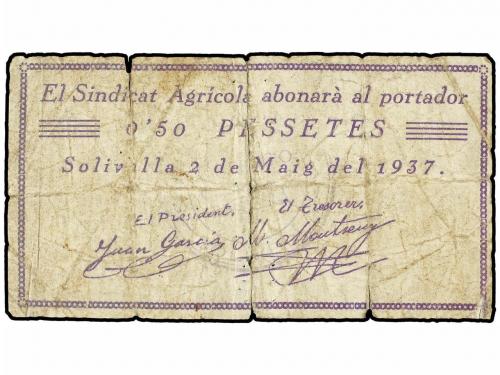 El Sindicat Agrícola abonarà al portador
0'50 PESSETES
Solivella 2 de Maig del 1937.
El President, El Tresorer,
Juan García M. Montseny